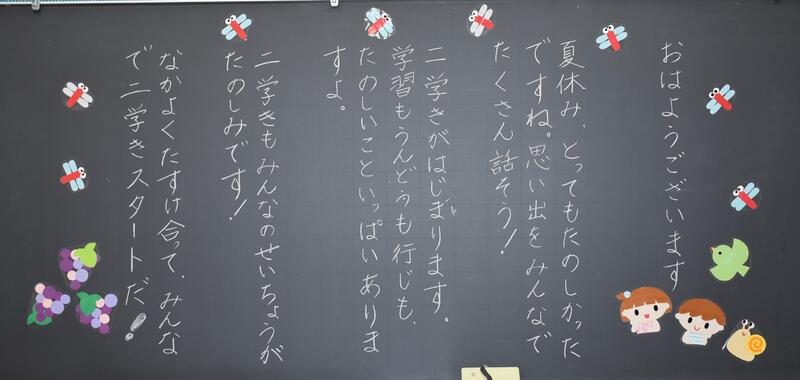 おはようございます
夏休み、とってもたのしかった
ですね。思い出をみんなで
たくさん話そう!
二学きがはじまります。
学習もうんどうも行じも、
たのしいこといっぱいありま
すよ。
二学きもみんなのせいちょうが
たのしみです!
なかよくたすけ合って、みんな
で二学きスタートだ!